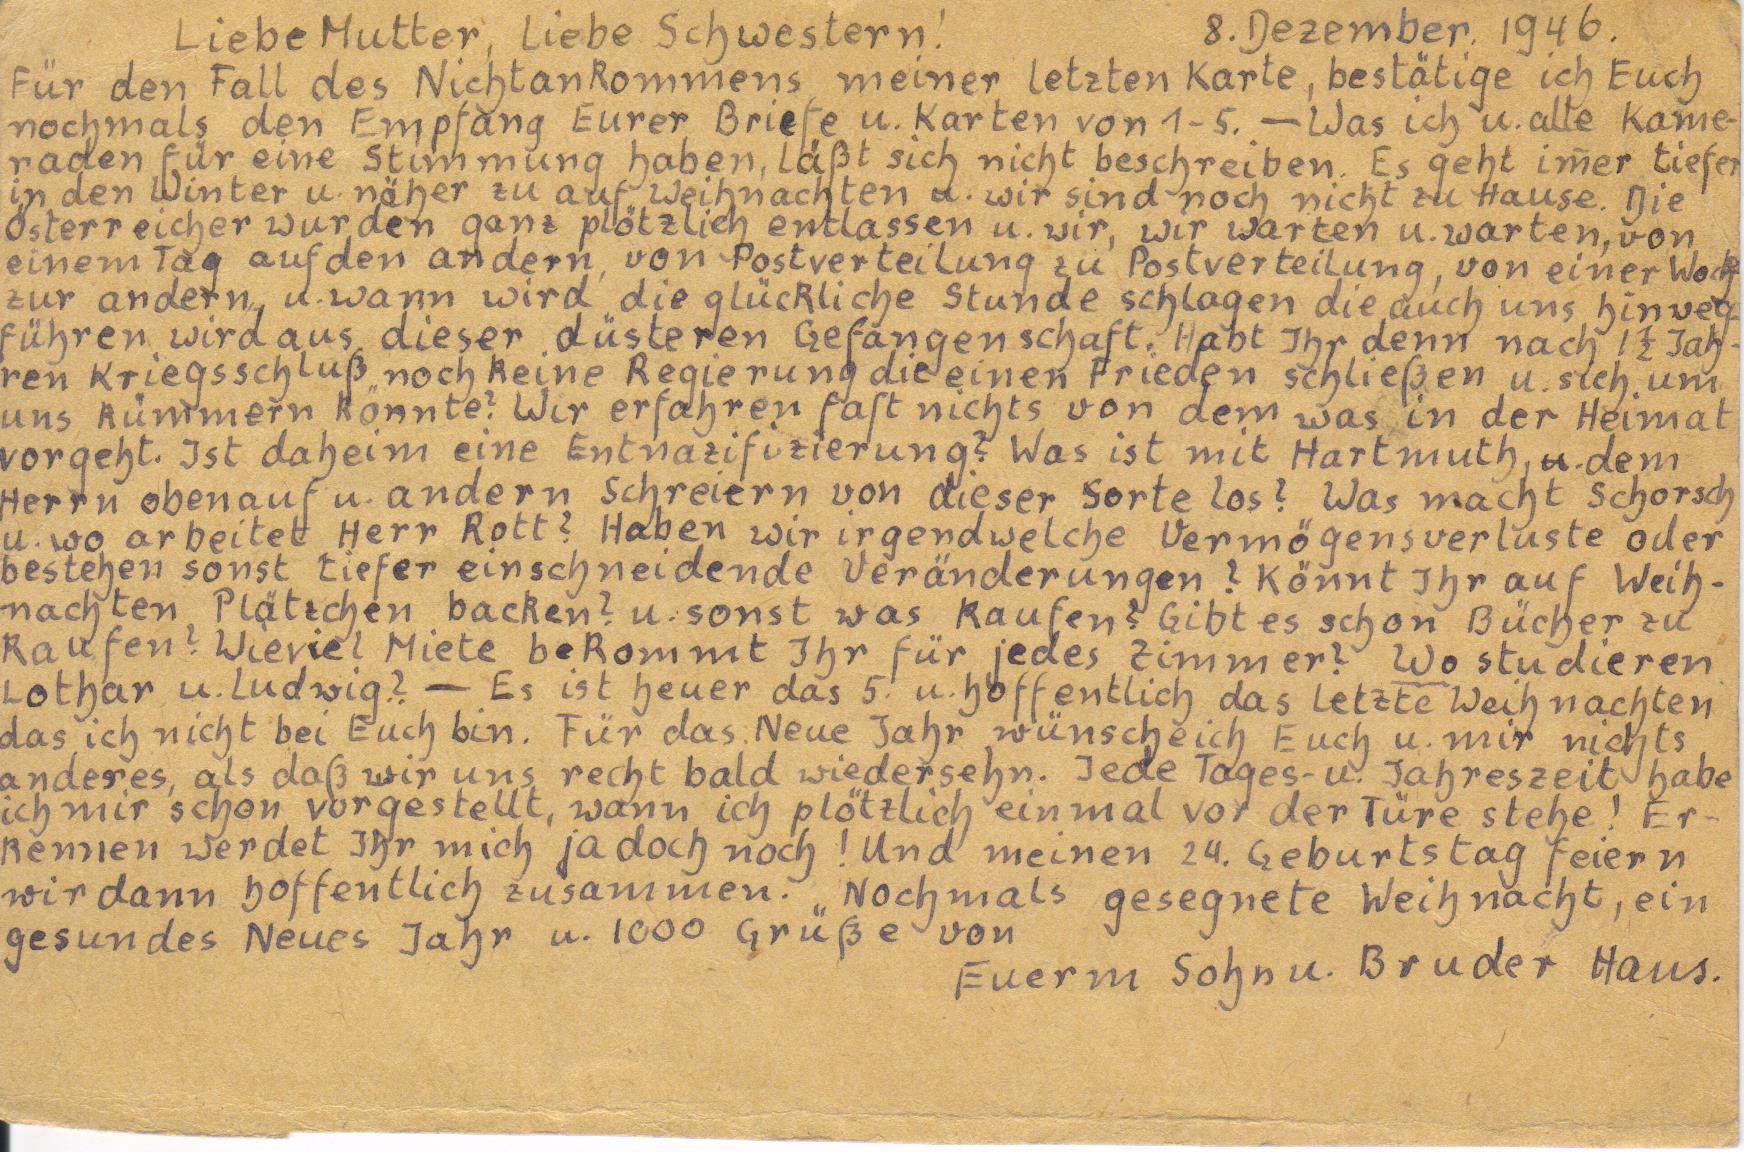 Liebe Mutter, Liebe Schwestern! 8. Dezember. 1946.
Für den Fall des Nichtankommens meiner letzten Karte, bestätige ich Euch
nochmals den Empfang Eurer Briefe u. Karten von 1-5. — Was ich u. alle Kame-
raden für eine Stimmung haben, läßt sich nicht beschreiben. Es geht im̄er tiefer
in den Winter u. näher zu auf Weihnachten u. wir sind noch nicht zu Hause. Die
Österreicher wurden ganz plötzlich entlassen u. wir, wir warten u. warten, von
einem Tag auf den andern, von Postverteilung zu Postverteilung, von einer Woche
zur andern, u. wann wird die glückliche Stunde schlagen die auch uns hinweg-
führen wird aus dieser düsteren Gefangenschaft. Habt Ihr denn nach 1½ Jah-
ren Kriegsschluß noch keine Regierung die einen Frieden schließen u. sich um
uns kümmern könnte? Wir erfahren fast nichts von dem was in der Heimat
vorgeht. Ist daheim eine Entnazifizierung? Was ist mit Hartmuth, u. dem
Herrn obenauf u. andern Schreiern von dieser Sorte los? Was macht Schorsch
u. wo arbeitet Herr Rott? Haben wir irgendwelche Vermögensverluste oder
bestehen sonst tiefer einschneidende Veränderungen? Könnt Ihr auf Weih-
nachten Plätzchen backen? u. sonst was kaufen? Gibt es schon Bücher zu
kaufen? Wieviel Miete bekommt Ihr für jedes Zimmer? Wo studieren
Lothar u. Ludwig? — Es ist heuer das 5. u. hoffentlich das letzte Weihnachten
das ich nicht bei Euch bin. Für das Neue Jahr wünsche ich Euch u. mir nichts
anderes, als daß wir uns recht bald wiedersehn. Jede Tages- u. Jahreszeit habe
ich mir schon vorgestellt, wann ich plötzlich einmal vor der Türe stehe! Er-
kennen werdet Ihr mich ja doch noch! Und meinen 24. Geburtstag feiern
wir dann hoffentlich zusammen. Nochmals gesegnete Weihnacht, ein
gesundes Neues Jahr u. 1000 Grüße von
Euerm Sohn u. Bruder Hans.